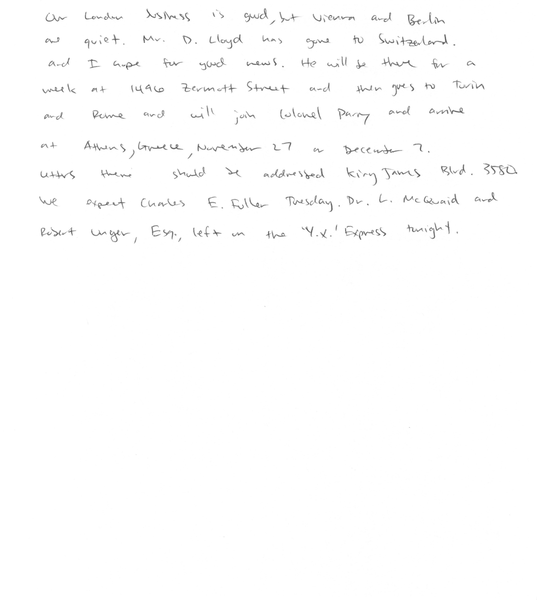 Our London business is good, but Vienna and Berlin
are quiet. Mr. D. Lloyd has gone to Switzerland.
and I hope for good news. He will be there for a
week at 1496 Zermott Street and then goes to Turin
and Rome and will join Colonel Parry and arrive
at Athens, Greece, November 27 or December 7.
Letters there should be addressed King James Blvd. 3580
We expect Charles E. Fuller Tuesday. Dr. L. McQuaid and
Robert Unger, Esq., left on the 'Y.X.' Express tonight.